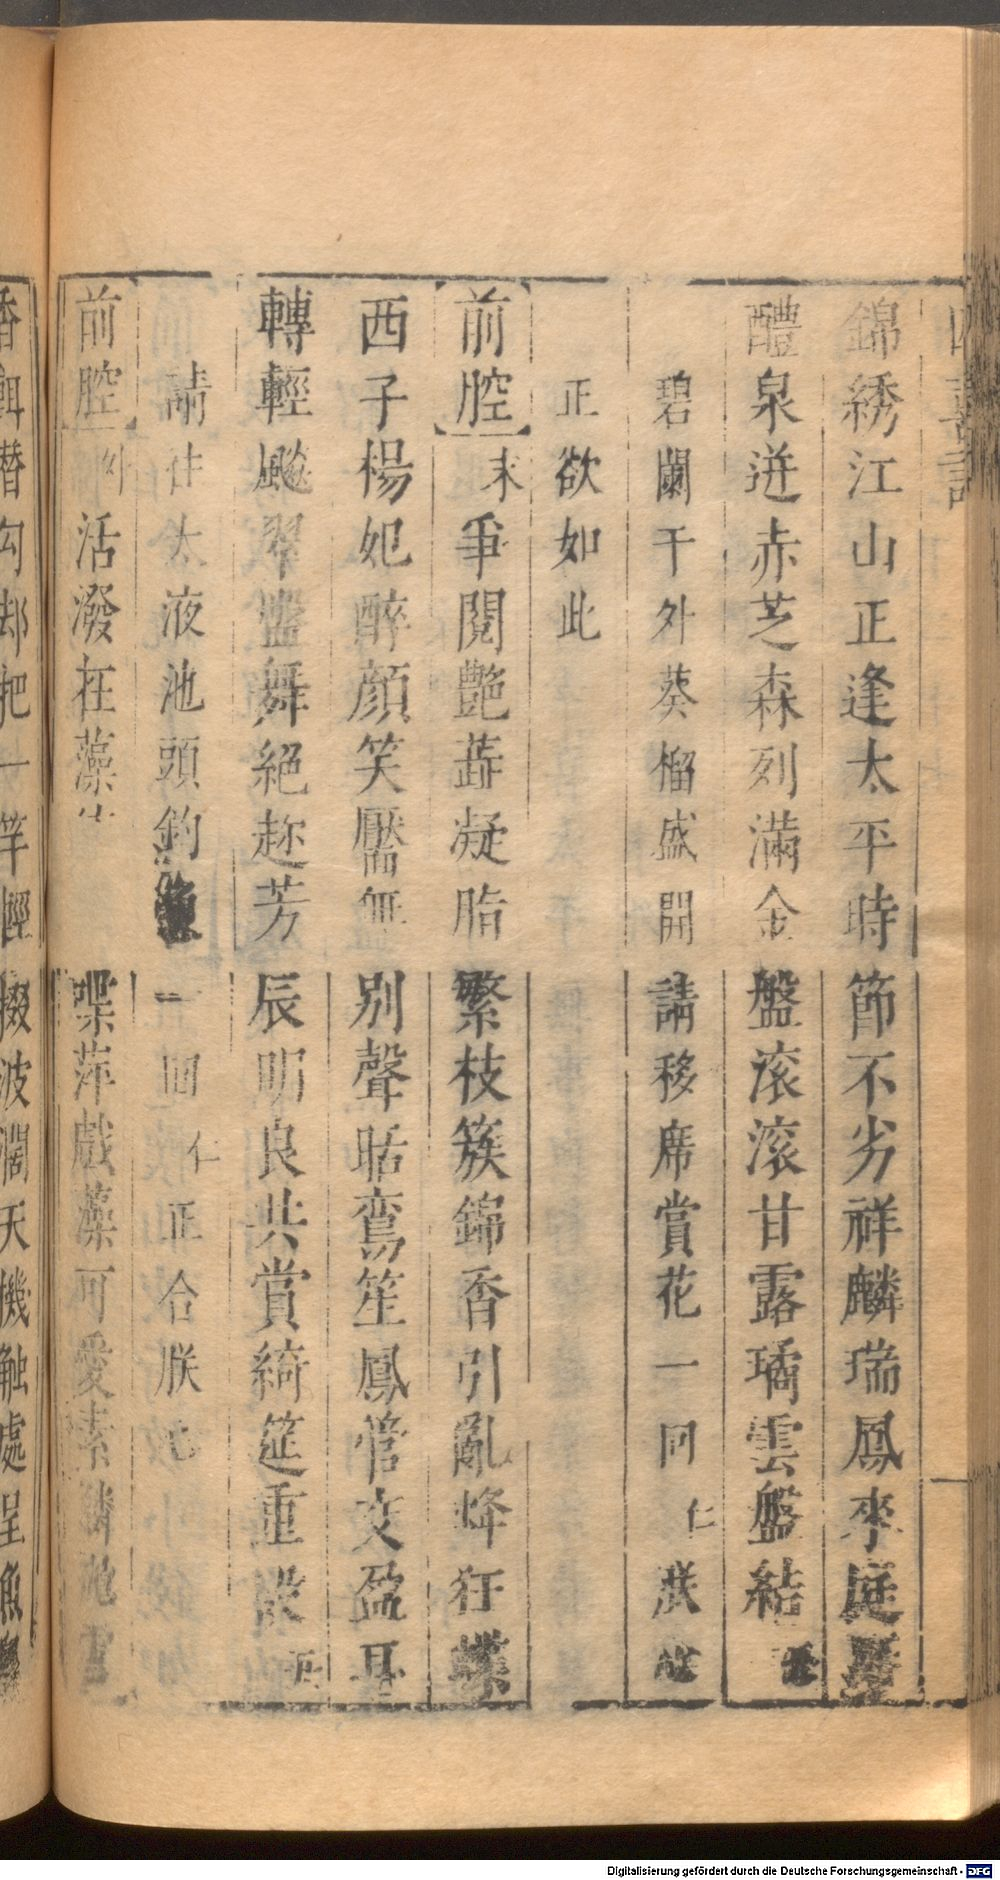 四喜記
錦綉江山正逢太平時節不劣祥麟瑞鳳來庭
醴泉迸赤芝森列滿金盤滚滚甘露璚雲盤結
碧闌干外葵榴盛開請移席賞花一回仁
正欲如此
前腔末爭閱艷蕋凝脂繁枝簇錦香引亂蜂狂蝶
西子楊妃醉顔笑靨無别聲聒鸞笙鳳管交盈耳
轉輕颸翠盤舞絕趂芳辰明良共賞綺筵重設
請往太液池頭釣魚一回仁正合朕
前腔外活潑在藻 喋萍戲藻可愛素鱗
香餌潜勾却把一竿輕掇波濶天機触處呈魚
Digitalisierung gefördert durch die Deutsche Forschungsgemeinschaft - DFG